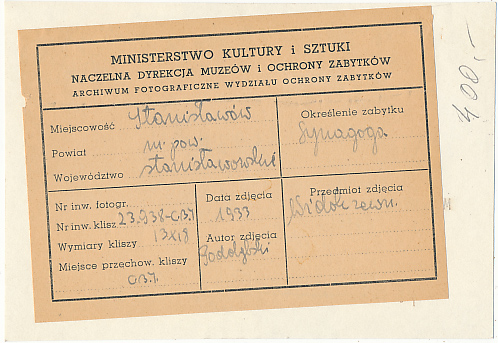 MINISTERSTWO KULTURY i SZTUKI
NACZELNA DYREKCJA MUZEÓW i OCHRONY ZABYTKÓW
ARCHIWUM FOTOGRAFICZNE WYDZIAŁU OCHRONY ZABYTKÓW
Miejscowość Stanisławów
Powiat m. pow.
Województwo stanisławowskie
Określenie zabytku
Synagoga
Nr inw. fotogr.
Nr inw. klisz 23.938-CBJ
Wymiary kliszy 13x18
Miejsce przechow. kliszy
CBJ.
Data zdjęcia
1933
Autor zdjęcia
Przedmiot zdjęcia
Widok zewn.
400.-